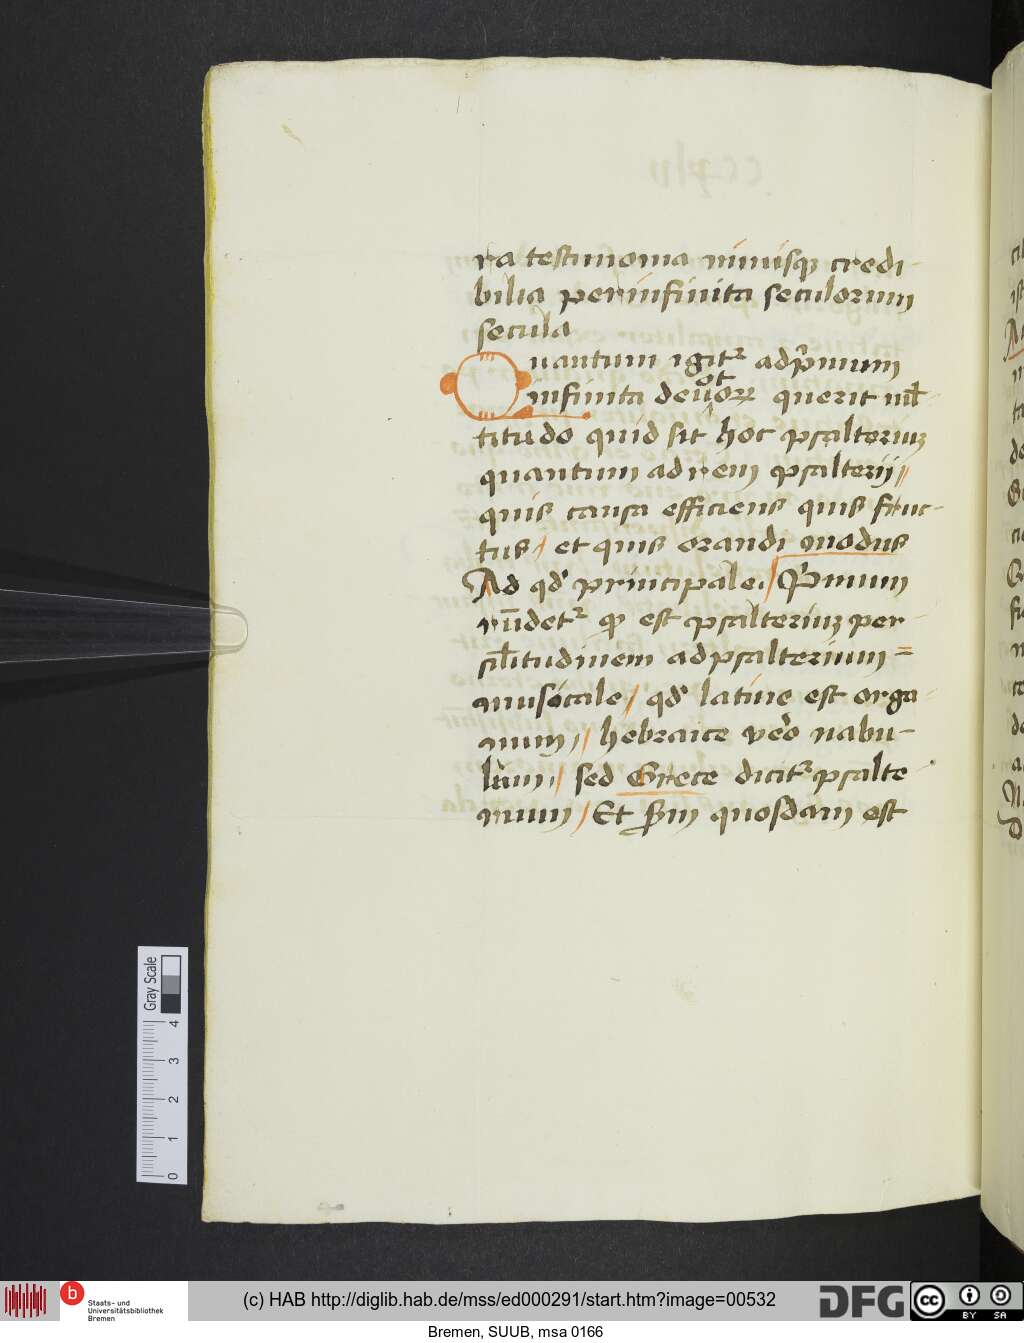 ra testimonia nimisqꝫ credi
bilia per infinita seculorum
secula
Quantum igitᷣ ad p̃mum
infinita deuotorꝝ querit ml̃
titudo quid sit hoc psalteriuꝫ
quantum ad rem psalterii /
quis causa efficiens quis fruc-
tus / et quis orandi modus
Ad qd̾ principale. P̃mum
rñdetᷣ ꝙ est psalteriuꝫ per
sil̃itudinem ad psalterium =
musicale / qd̾ latine est orga-
num, / hebraice vero nabu-
lum, / sed Grece dicitᷣ psalte
rium / Et s̃m quosdam est
Gray Scale
0 1 2 3 4
b
Staats- und
Universitätsbibliothek
Bremen
(c) HAB http://diglib.hab.de/mss/ed000291/start.htm?image=00532
DFG
cc BY SA
Bremen, SUUB, msa 0166